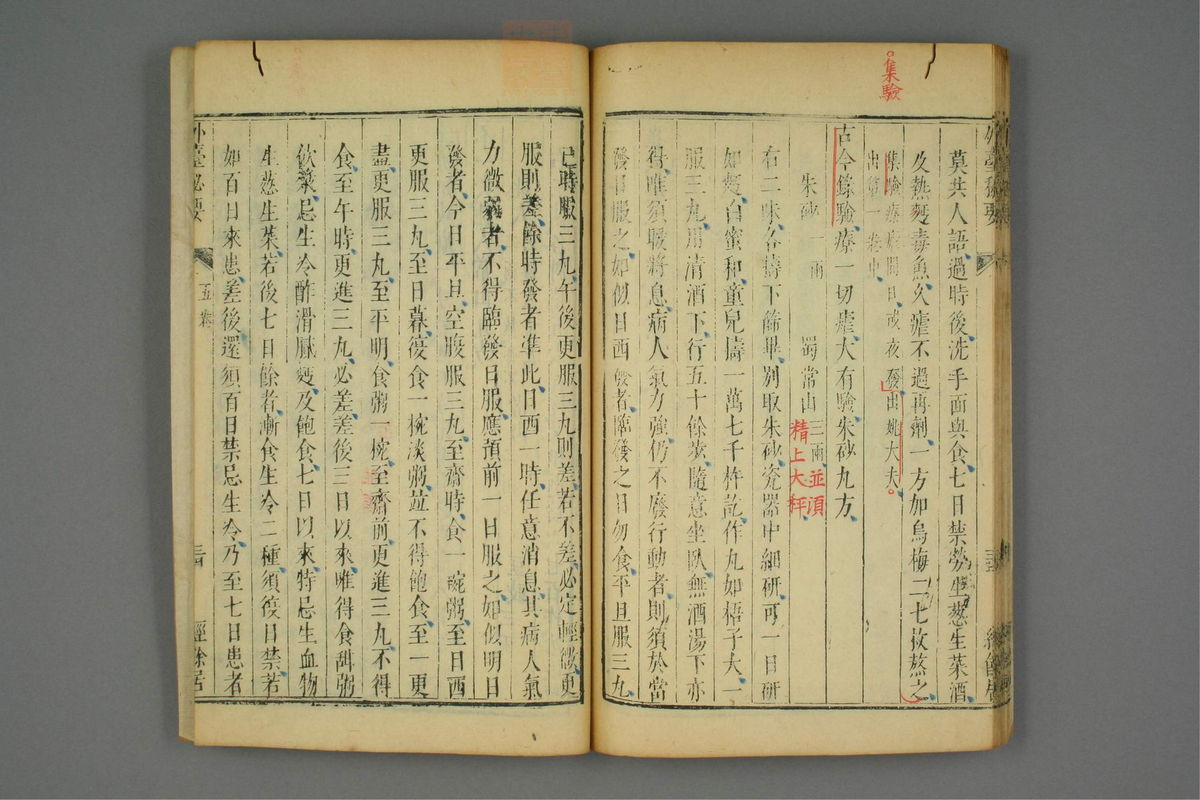 集驗
莫共人語過時後洗手面與食七日禁勞生葱生菜酒
及熱麪毒魚久瘧不過再劑一方如烏梅二七枚蒸之
集驗療瘧間日或夜發出姚大夫
出第一卷中
古今錄驗療一切瘧大有驗朱砂丸方
朱砂一兩 蜀常山三兩
並須
精上大秤
右二味各擣下篩畢別取朱砂瓷器中細研可一日研
如麪白蜜和童兒擣一萬七千杵訖作丸如梧子大一
服三丸用清酒下行五十餘步隨意坐臥無酒湯下亦
得唯須暖將息病人氣力強仍不廢行動者則須於當
發日服之如似日西發者臨發之日勿食平旦服三丸
已時服三丸午後更服三丸則差若不差必定輕欲更
服則差餘時發者準此日西一時任意消息其病人氣
力微弱者不得臨發日服應預前一日服之如似明日
發者今日平旦空腹服三丸至齋時食一碗粥至日西
更服三丸至日暮復食一椀淡粥並不得飽食至一更
盡更服三丸至平明食粥一椀至齋前更進三丸不得
食至午時更進三丸必差差後三日以來唯得食甜粥
飲漿忌生冷酢滑膩麪及飽食七日以來特忌生血物
生葱生菜若後七日餘者漸食生冷二種須復日禁若
如百日來患差後還須百日禁忌生冷乃至七日患者
外臺祕要
五卷
經餘居